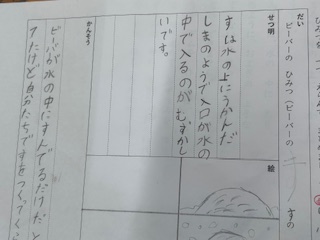 だい
ビーバーの ひみつ(ビーバーの
すの
せつ明
すは水の上にうかんだ
しまのようで入口が水の
中で入るのがむずかし
いです。
絵
かんそう
ビーバーが水の中にすんでるだけだと
てたけど自分たちですをつくってくら